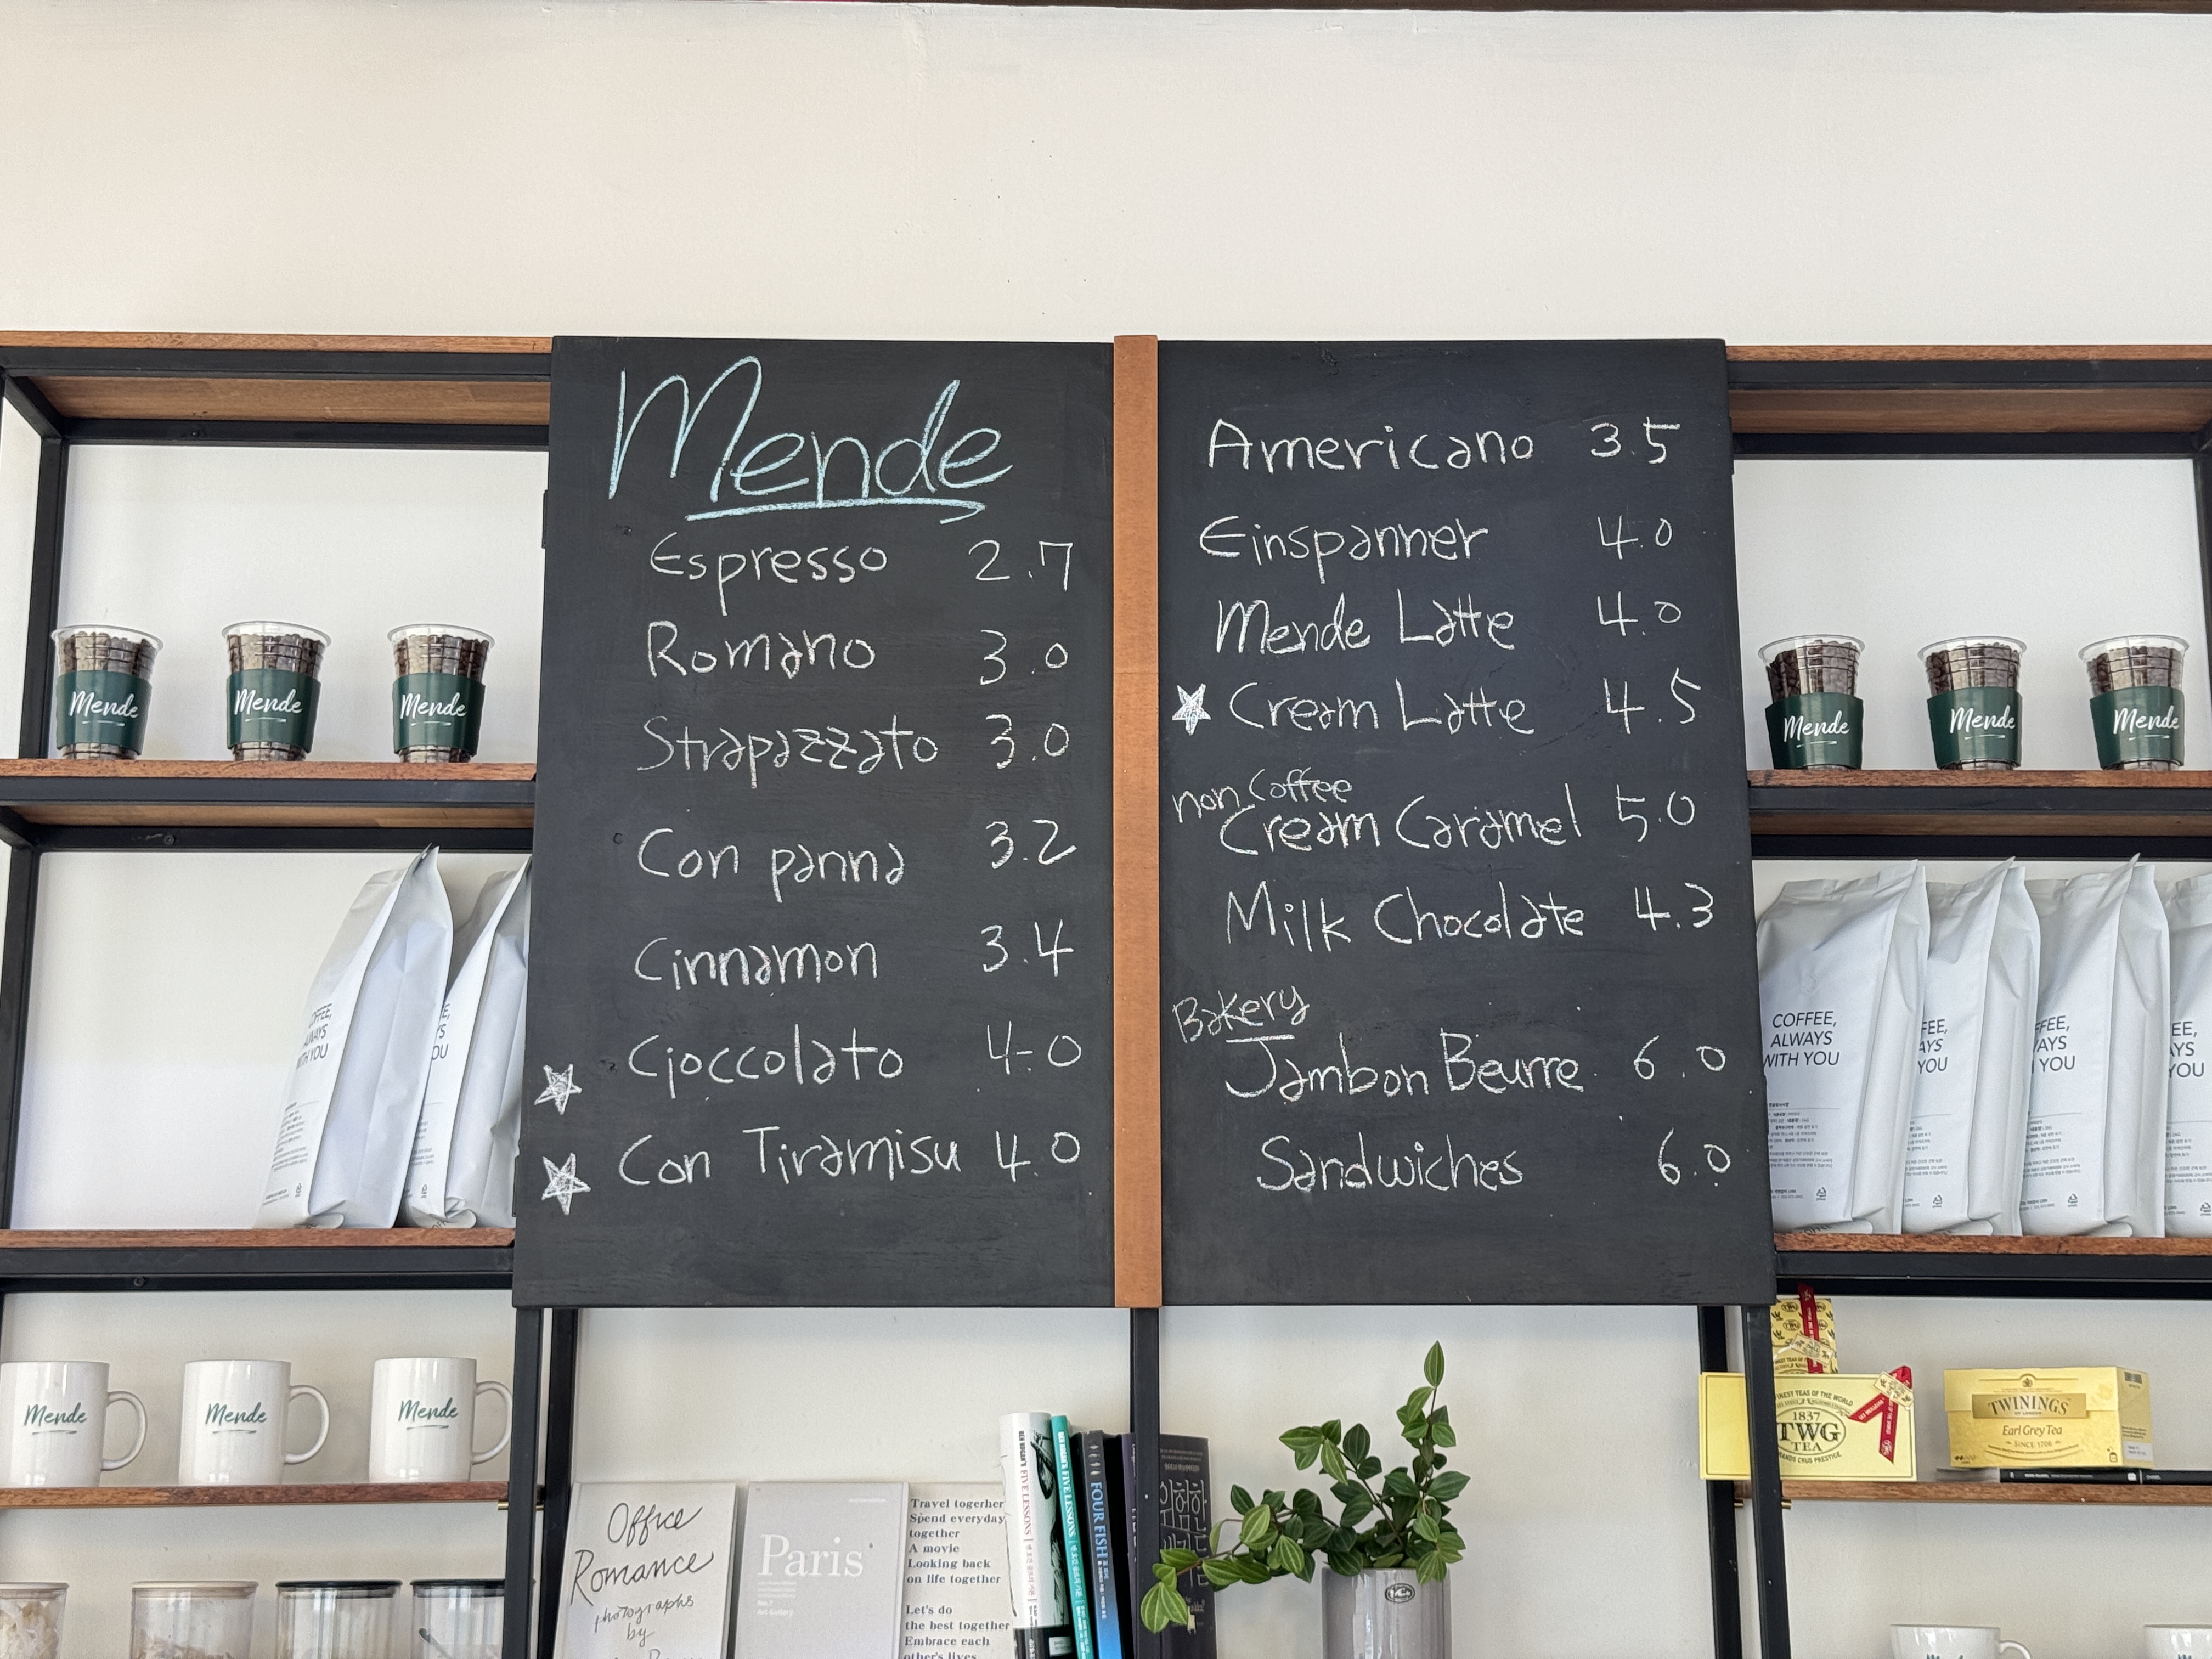 Mende
Espresso 2.7
Romano 3.0
Strapazzato 3.0
Con panna 3.2
Cinnamon 3.4
Cioccolato 4.0
Con Tiramisu 4.0
Americano 3.5
Einspanner 4.0
Mende Latte 4.0
Cream Latte 4.5
non Coffee
Cream Caramel 5.0
Milk Chocolate 4.3
Bakery
Jambon Beurre 6.0
Sandwiches 6.0
Mende
Mende
Mende
Mende
Mende
Mende
WITH YOU
COFFEE,
ALWAYS
WITH YOU
Mende
Mende
Mende
Office
Romance
photographs
by
Paris
No.7
Art Gallery
Travel togerher
Spend everyday
together
A movie
Looking back
on life together
Let's do
the best together
Embrace each
other's lives
BEN HOGAN'S FIVE LESSONS
BEN HOGAN'S FIVE LESSONS
FOUR FISH
위험한
FINEST TEAS OF THE WORLD
1837
TWG
TEA
GRANDS CRUS PRESTIGE
TWININGS
OF LONDON
Earl Grey Tea
SINCE 1706